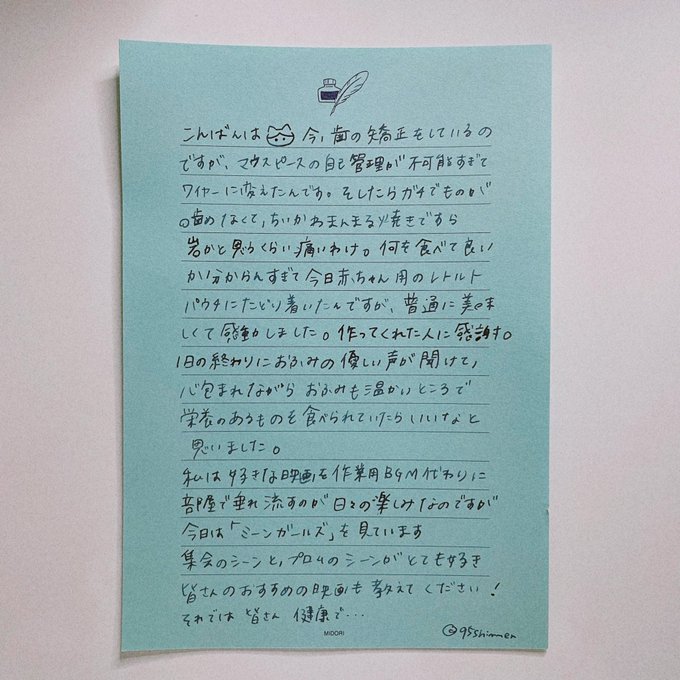 こんばんは 今、歯の矯正をしているの
ですが、マウスピースの自己管理が不可能すぎて
ワイヤーに変えたんです。そしたらガチでものが
噛めなくて、ちいかわまんまる焼きですら
岩かと思うくらい痛いわけ。何を食べて良い
か分からんすぎて今日赤ちゃん用のレトルト
パウチにたどり着いたんですが、普通に美味
しくて感動しました。作ってくれた人に感謝す。
1日の終わりにおふみの優しい声が聞けて、
心包まれながら おふみも温かいところで
栄養のあるものを食べられていたらいいなと
思いました。
私は好きな映画を作業用BGM代わりに
部屋で垂れ流すのが日々の楽しみなのですが
今日は「ミーンガールズ」を見ています
集会のシーンと、プロムのシーンがとても好き
皆さんのおすすめの映画も教えてください!
それでは 皆さん 健康で…
MIDORI